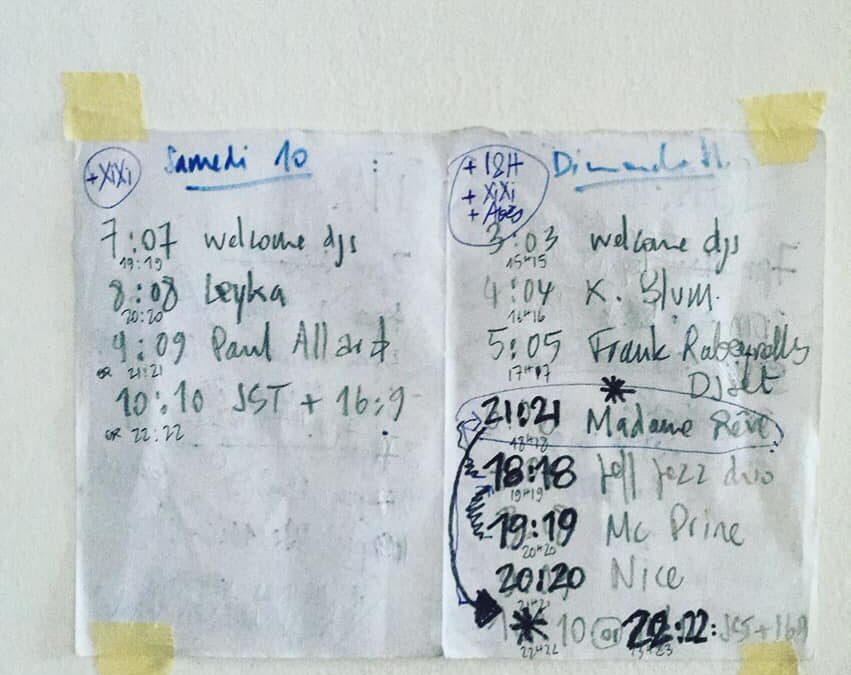 +XiXi
Samedi 10
7:07 welcome djs
19:19
8:08 Leyka
20:20
9:09 Paul Allard
OR 21:21
10:10 JST + 16:9
OR 22:22
+ 18H
+ XiXi
Dimanche 11
3:03 welcome djs
15H15
4:04 K. Blum.
16H16
5:05 Frank Rabeyrolles
17H17
Djset
21:21 Madame Rêve
18H18
18:18 Jeff Jazz duo
19H19
19:19 Mc Prine
20H20
20:20 Nice
21H21
10 or 22:22: JST + 16:9
22H22